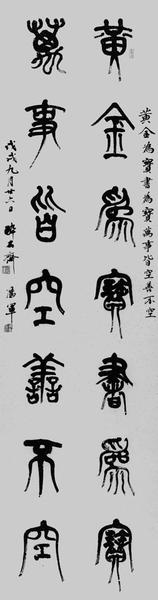 黃金為寶書為寶萬事皆空善不空
黃金為寶書為寶
萬事皆空善不空
戊戌九月廿六日醉石齋